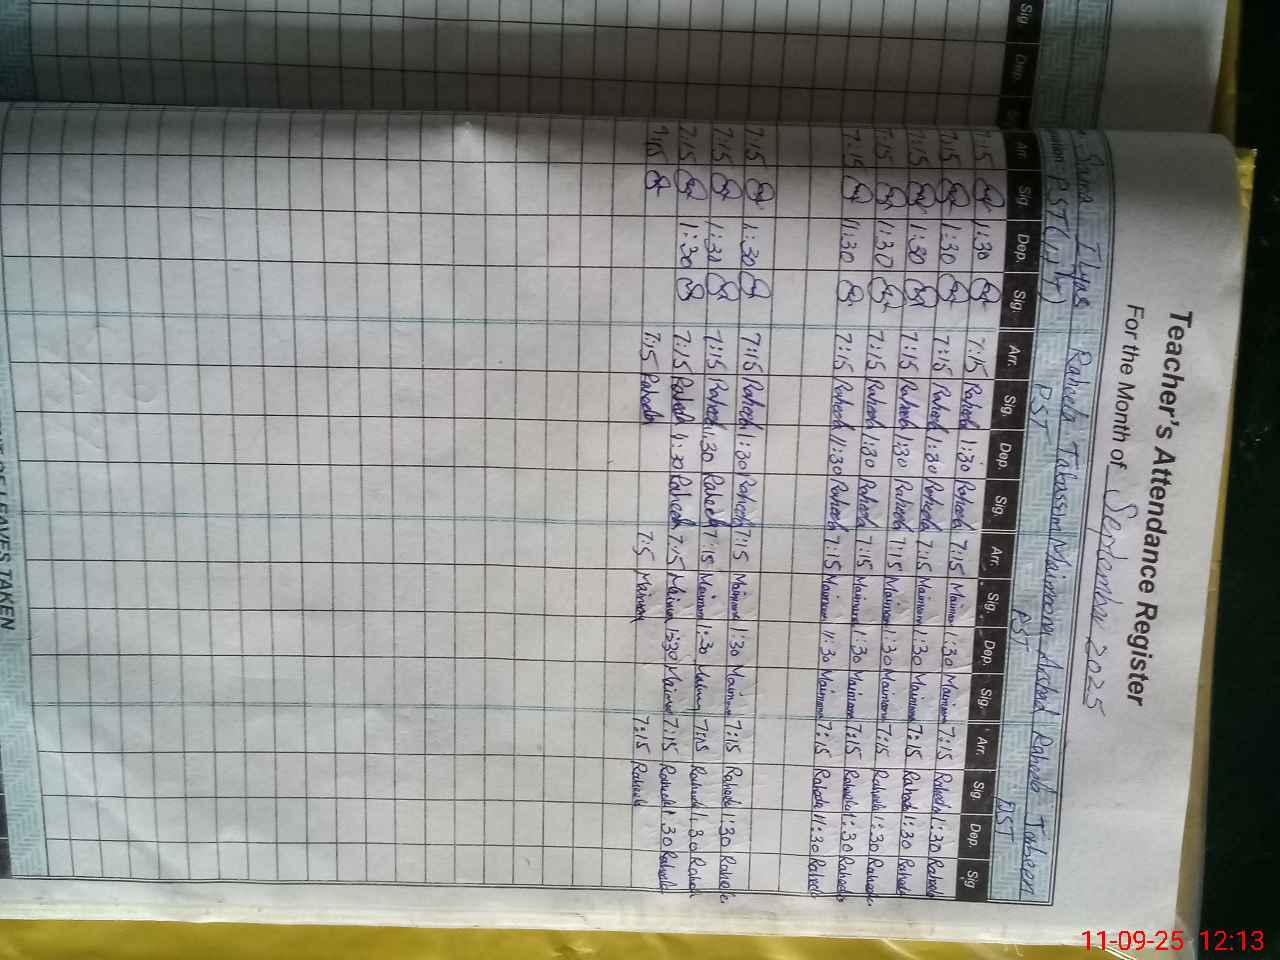 Sig. Dep.
Teacher's Attendance Register
For the Month of September 2025
Sana Ilyas Raheela Tabassim Maimona Arshad Raheela Tabseen
PST PST PST PST
Arr. Sig. Dep. Sig. Arr. Sig. Dep. Sig. Arr. Sig. Dep. Sig. Arr. Sig. Dep. Sig
7:15 1:30 7:15 Raheela 1:30 Raheela 7:15 Maimona 1:30 Maimona 7:15 Raheela 1:30 Raheela
7:15 1:30 7:15 Raheela 1:30 Raheela 7:15 Maimona 1:30 Maimona 7:15 Raheela 1:30 Raheela
7:15 1:30 7:15 Raheela 1:30 Raheela 7:15 Maimona 1:30 Maimona 7:15 Raheela 1:30 Raheela
7:15 1:30 7:15 Raheela 1:30 Raheela 7:15 Maimona 1:30 Maimona 7:15 Raheela 1:30 Raheela
7:15 11:30 7:15 Raheela 11:30 Raheela 7:15 Maimona 11:30 Maimona 7:15 Raheela 11:30 Raheela
7:15 1:30 7:15 Raheela 1:30 Raheela 7:15 Maimona 1:30 Maimona 7:15 Raheela 1:30 Raheela
7:15 1:30 7:15 Raheela 1:30 Raheela 7:15 Maimona 1:30 7:15 Raheela 1:30 Raheela
7:15 1:30 7:15 Raheela 1:30 Raheela 7:5 Maimona 1:30 Maimona 7:15 Raheela 1:30 Raheela
7:15 7:15 Raheela 7:5 Maimona 7:15 Raheela
OF LEAVES TAKEN
11-09-25 12:13